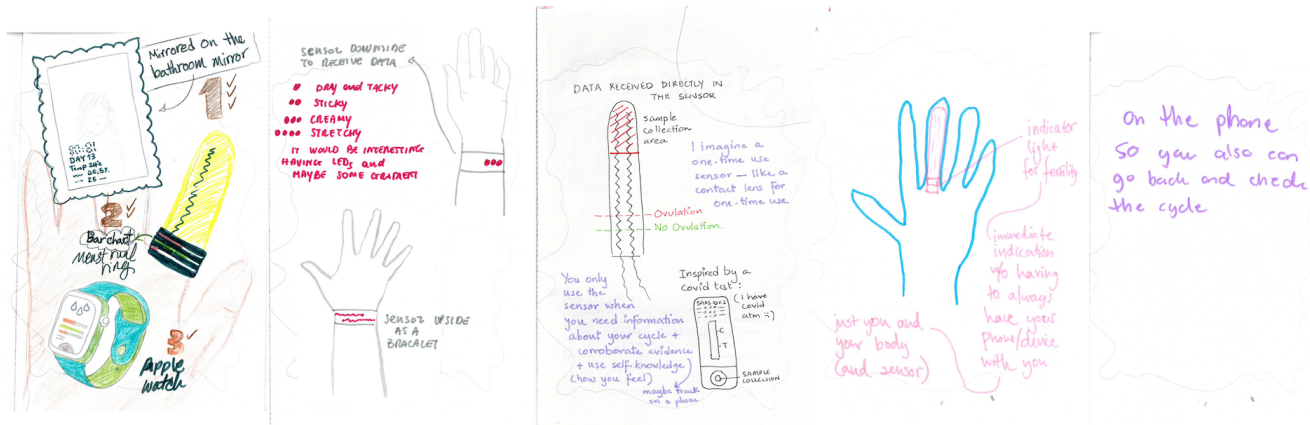 Mirrored on the
bathroom mirror
1
DAY 13
2
Bar chart
menstrual
ring
3
Apple
watch
SENSOR DOWNSIDE
TO RECEIVE DATA
DRY and TACKY
STICKY
CREAMY
STRETCHY
IT WOULD BE INTERESTING
HAVING LEDs and
MAYBE SOME
SENSOR UPSIDE
AS A
BRACALET
DATA RECEIVED DIRECTLY IN
THE SENSOR
sample
collection
area
I imagine a
one-time use
sensor — like a
contact lens for
one-time use
Ovulation
No Ovulation.
You only
use the
sensor when
you need information
about your cycle +
corroborate evidence
+ use self-knowledge
(how you feel)
maybe track
on a phone
Inspired by a
Covid test:
(I have
covid
atm :))
C
T
SAMPLE
COLLECTION
indicator
light
for fertility
immediate
indication
w/o having
to always
have your
phone/device
with you
just you and
your body
(and sensor)
on the phone
so you also can
go back and check
the cycle